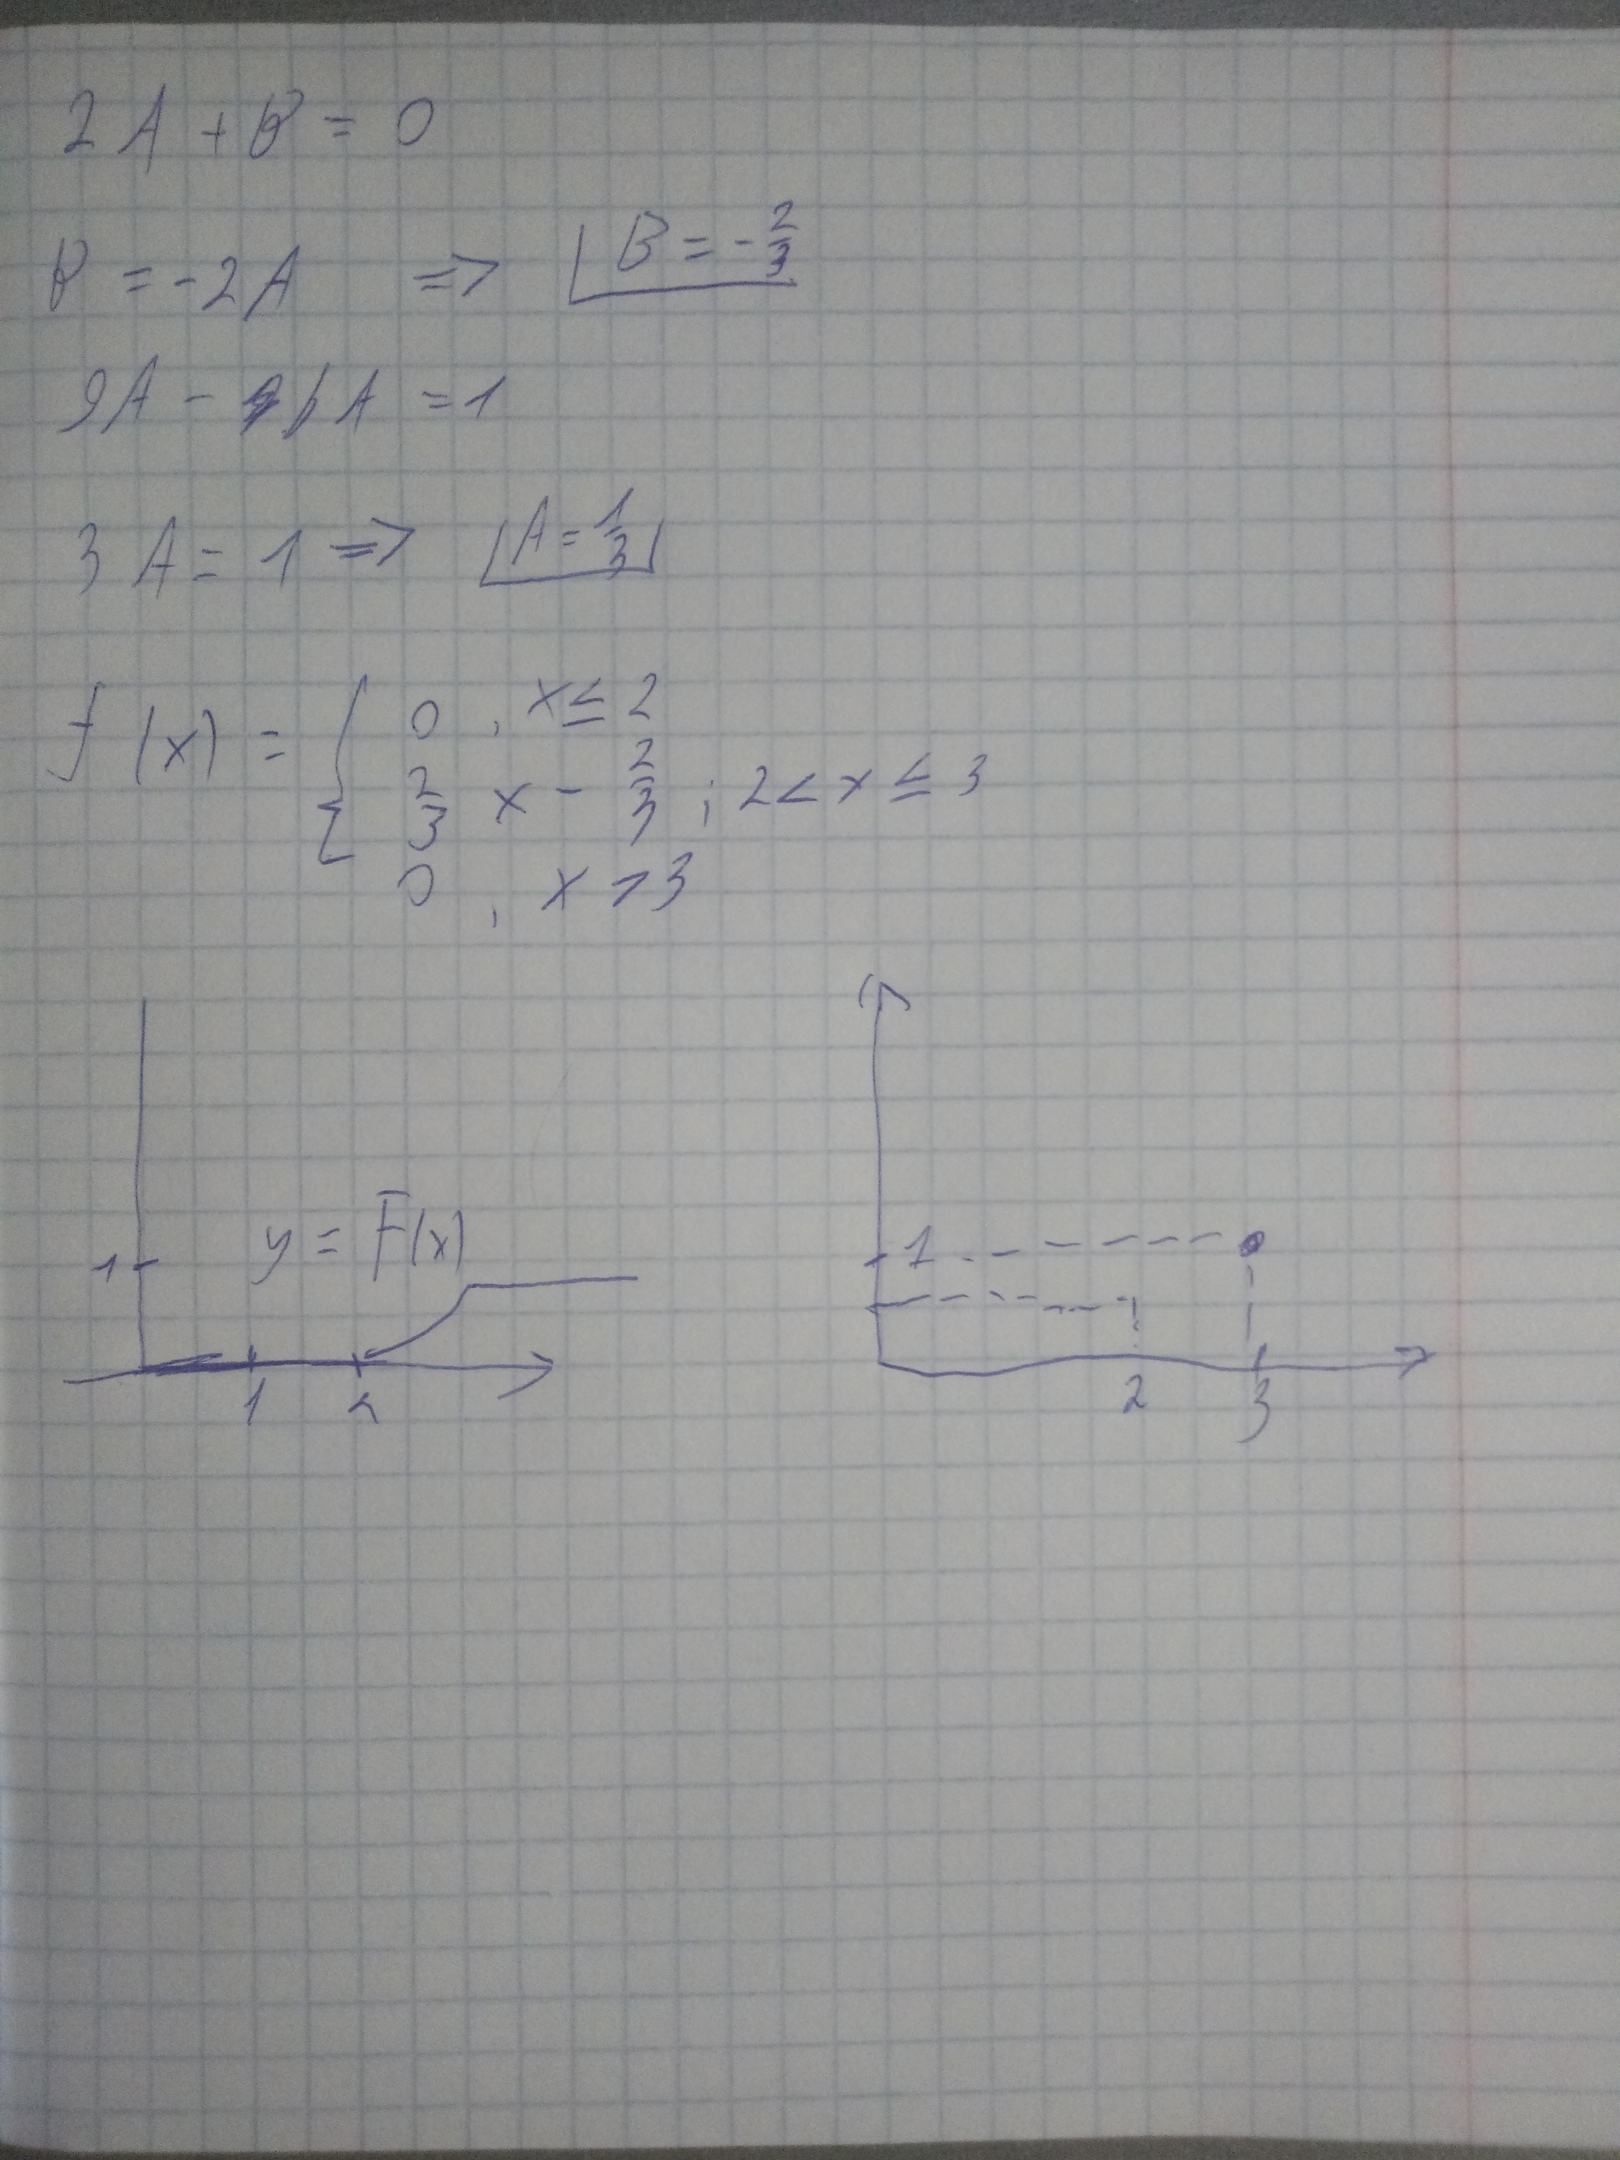 2A + B = 0
B = -2A => B = -2/3
9A - 6A = 1
3A = 1 => A = 1/3
f(x) = { 0, x ≤ 2
2/3 x - 2/3; 2 < x ≤ 3
0, x > 3
y = F(x)
1
1 2
1
2 3